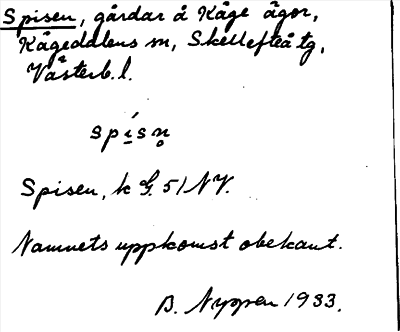 Spisen, gårdar å Kåge ägor,
Kågedalens sn, Skellefteå tg,
Västerb. l.
spísn̥
Spisen, k G. 51 NV.
Namnets uppkomst obekant.
B. 1933.